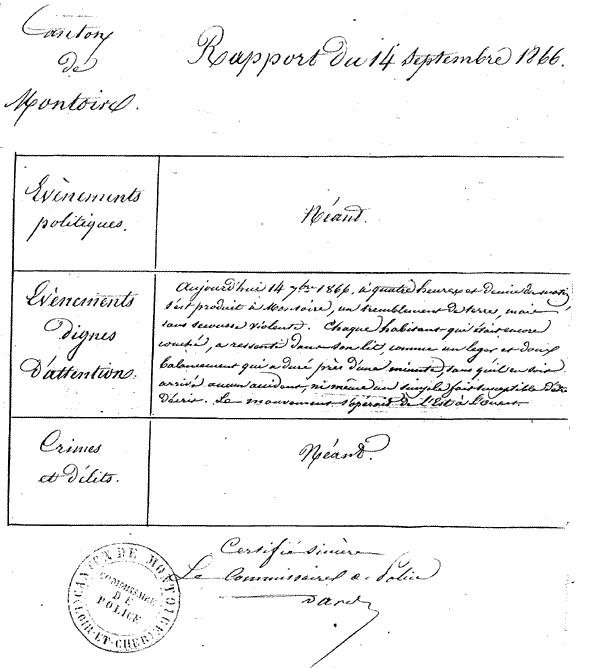 Canton
de
Montoire.
Rapport du 14 Septembre 1866.
Evènements
politiques.
Néant.
Evènements
dignes
d'attention.
Aujourd'hui 14 7bre 1866, à quatre heures et demie du matin,
s'est produit à Montoire, un tremblement de terre, mais
sans secousse violente. Chaque habitant qui était encore
couché, a ressenti dans son lit, comme un léger et doux
balancement qui a duré près d'une minute, sans qu'il en soit
arrivé aucun accident, ni même un simple fait susceptible d'être
décrit. Le mouvement s'opérait de l'Est à l'ouest.
Crimes
et délits.
Néant.
Certifié sincère
Le Commissaire de Police
CANTON DE MONTOIRE
LOIR-ET-CHER
COMMISSAIRE
DE
POLICE